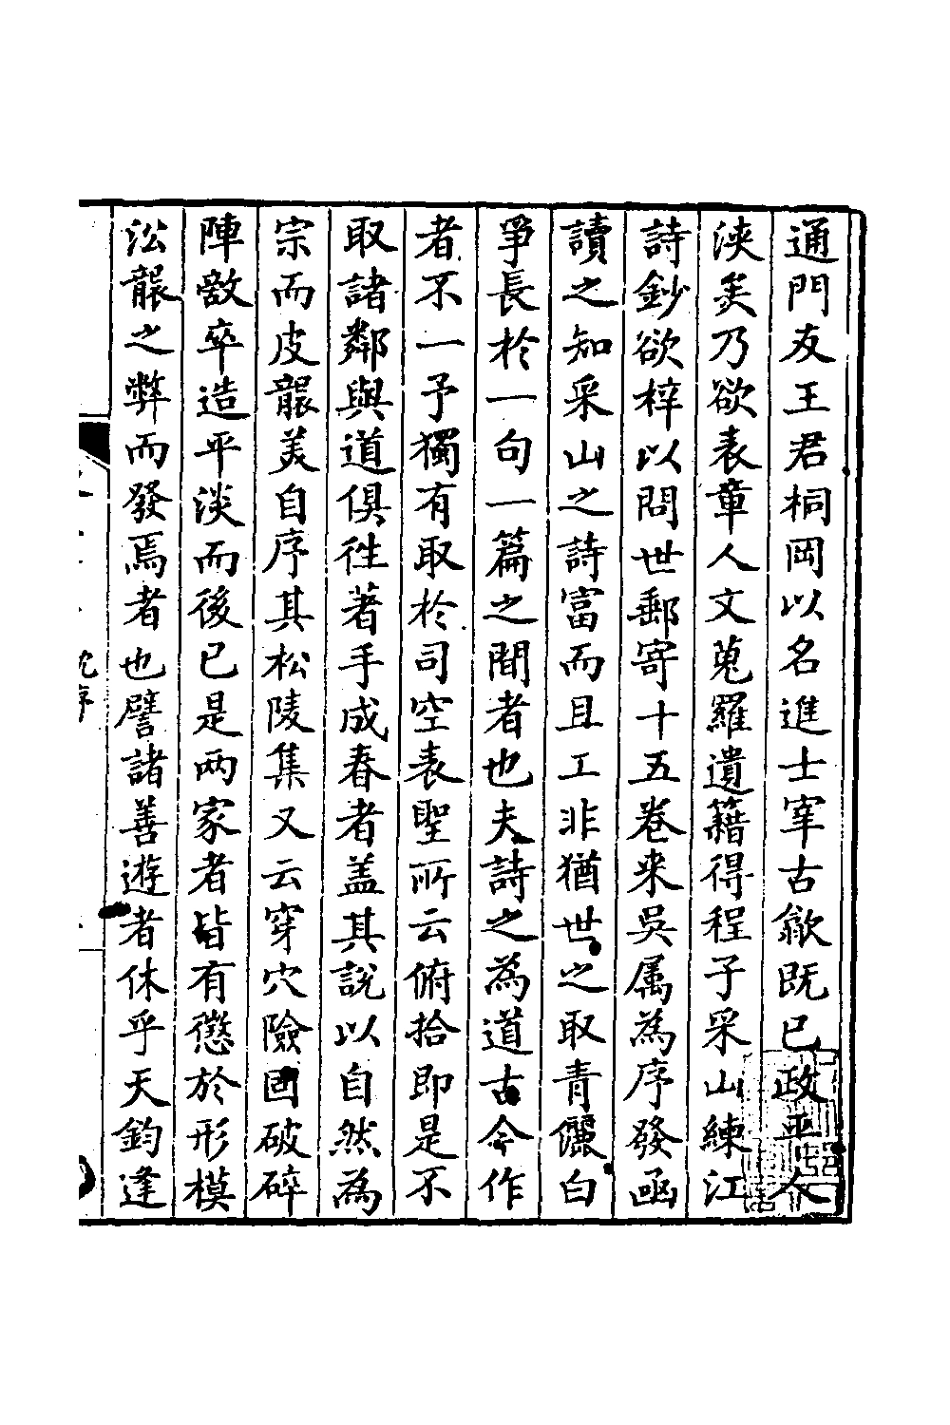 通門友王君桐岡以名進士宰古歙既已政平人
浹矣乃欲表章人文蒐羅遺籍得程子采山練江
詩鈔欲梓以問世郵寄十五卷来吳属為序發函
讀之知采山之詩富而且工非猶世之取青儷白
爭長於一句一篇之間者也夫詩之為道古今作
者不一予獨有取於司空表聖所云俯拾即是不
取諸鄰與道俱徃著手成春者盖其說以自然為
宗而皮襲美自序其松陵集又云穿穴險固破碎
陣敵卒造平淡而後已是两家者皆有懲於形模
㳂襲之弊而發焉者也譬諸善遊者休乎天鈞逢
沈序